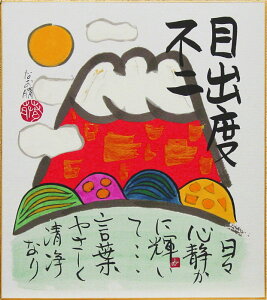 目出度
不二
日々
心静か
に輝い
て…
言葉
やさしく
清浄
なり